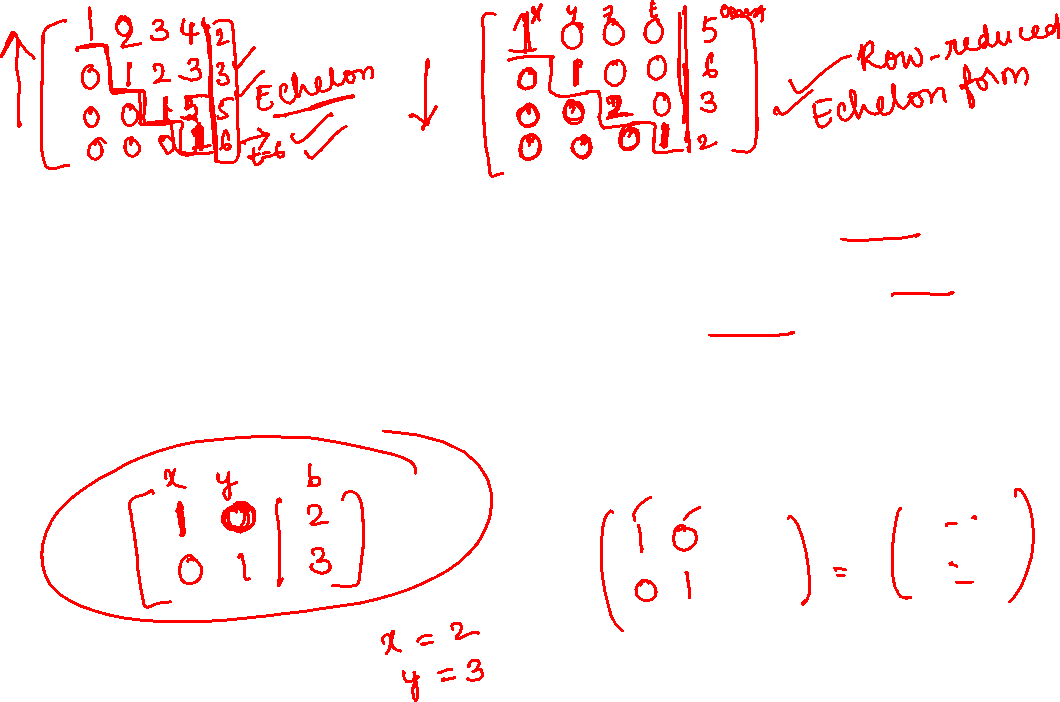 1 2 3 4 | 2
0 1 2 3 | 3
0 0 1 5 | 5
0 0 0 1 | 6 → t=6
Echelon
x y z t
1 0 0 0 | 5
0 1 0 0 | 6
0 0 2 0 | 3
0 0 0 1 | 2
Row-reduced
Echelon form
x y b
1 0 | 2
0 1 | 3
x = 2
y = 3
1 0
0 1
=